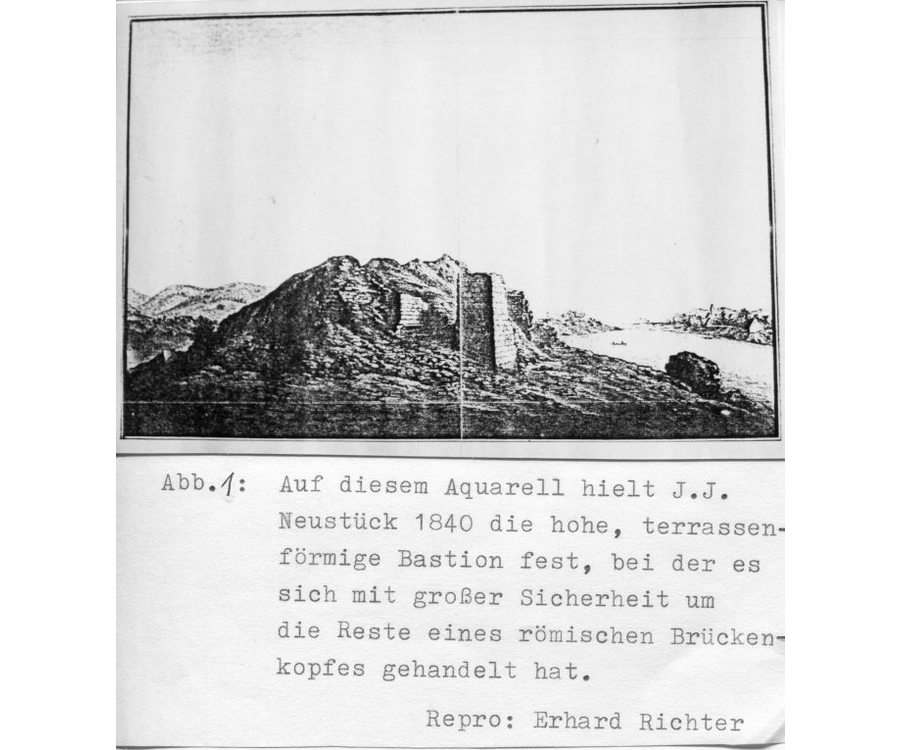 Abb. 1: Auf diesem Aquarell hielt J.J.
Neustück 1840 die hohe, terrassen-
förmige Bastion fest, bei der es
sich mit großer Sicherheit um
die Reste eines römischen Brücken-
kopfes gehandelt hat.
Repro: Erhard Richter